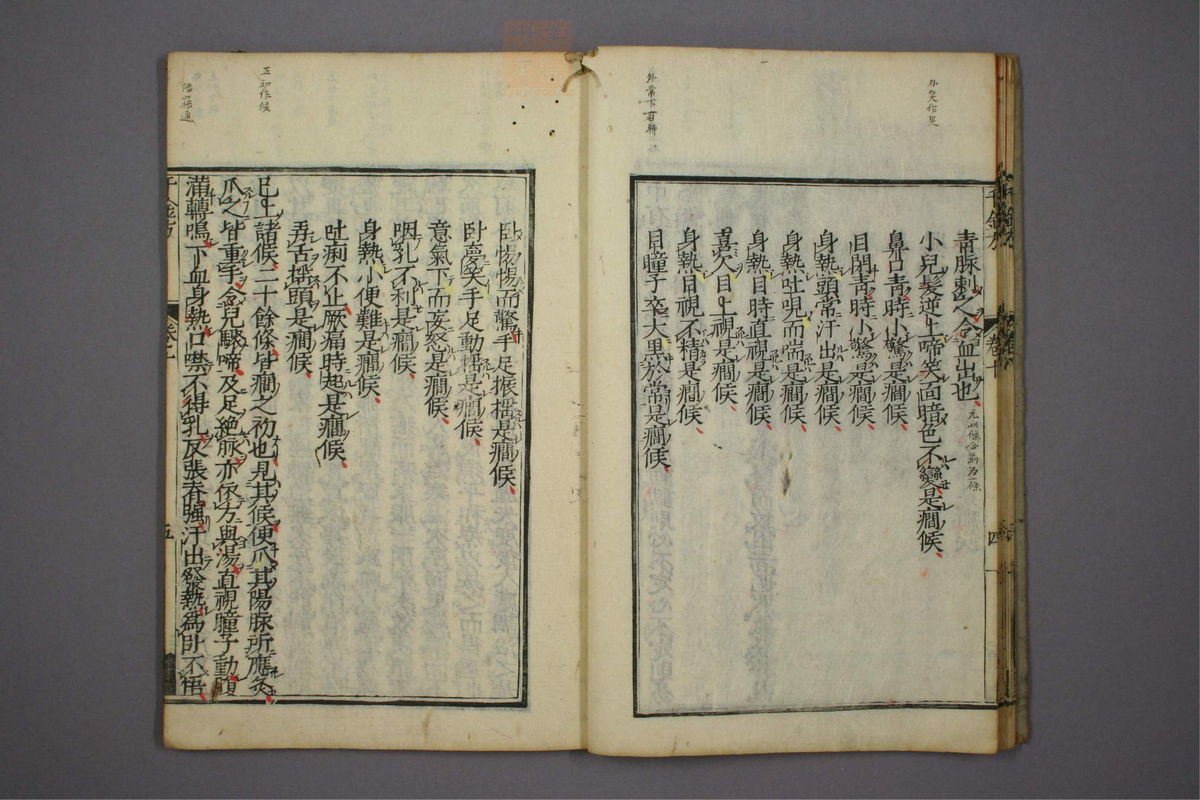 外突作契
青脉刺之令血出也
元此條合前为一條
小兒髮逆上啼笑面暗色不變是癇候
鼻口青時小驚是癇候
目閉青時小驚是癇候
身熱頭常汗出是癇候
身熱吐哯而喘是癇候
身熱目時直視是癇候
喜欠目上視是癇候
身熱目視不精是癇候
目瞳子卒大黑於常是癇候
外常下有時
千金方
卷十
四
臥惕惕而驚手足振搖是癇候
臥夢笑手足動搖是癇候
意氣下而妄怒是癇候
咽乳不利是癇候
身熱小便難是癇候
吐痢不止厥痛時起是癇候
弄舌搖頭是癇候
正初作候
已上諸候二十餘條皆癇之初也見其候便爪其陽脉所應灸
爪之皆重手令兒驟啼及足絶脉亦依方與湯直視瞳子動腹
滿轉鳴下血身熱口噤不得乳反張脊強汗出發熱為卧不悟
悟寤通
千金方
五